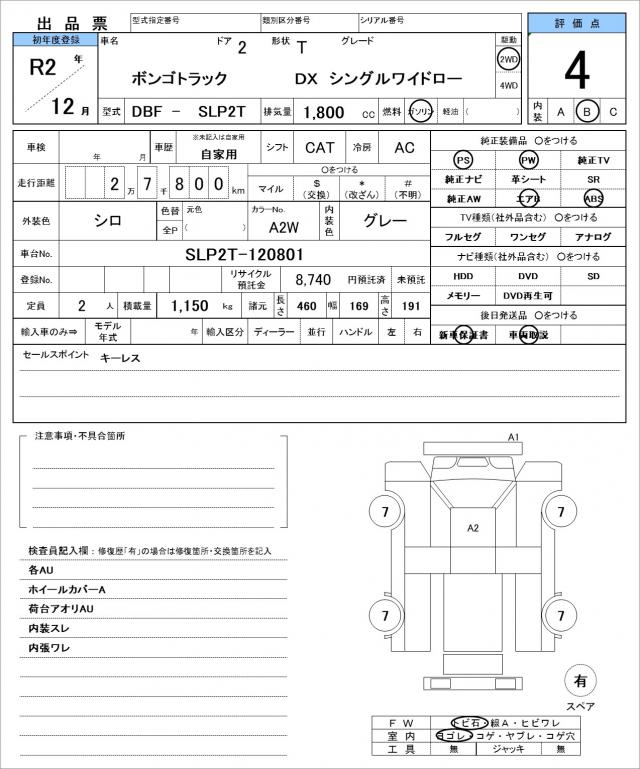 出品票 型式指定番号 類別区分番号 シリアル番号 評価点
初年度登録 車名 ドア 2 形状 T グレード 駆動
R2 年 12 月
ボンゴトラック DX シングルワイドロー 2WD 4WD
4
型式 DBF － SLP2T 排気量 1,800 cc 燃料 ガソリン 軽油 ( ) 内装 A B C
車検 年 月 車歴 ※未記入は自家用 自家用 シフト CAT 冷房 AC
純正装備品 〇をつける
PS PW 純正TV
走行距離 2 万 7 千 8 0 0 km 〇をつける
マイル $ (交換) * (改ざん) # (不明)
純正ナビ 革シート SR
純正AW エアB ABS
外装色 シロ 色替 元色 全P ( ) カラーNo. A2W 内装色 グレー
TV種類(社外品含む) 〇をつける
フルセグ ワンセグ アナログ
車台No. SLP2T-120801
ナビ種類(社外品含む) 〇をつける
登録No. リサイクル預託金 8,740 円預託済 未預託
HDD DVD SD
メモリー DVD再生可
定員 2 人 積載量 1,150 kg 諸元 長さ 460 幅 169 高さ 191
後日発送品 〇をつける
輸入車のみ⇒ モデル年式 年 輸入区分 ディーラー 並行 ハンドル 左 右
新車保証書 車両取説
セールスポイント キーレス
注意事項・不具合箇所
A1
7 7
A2
7 7
検査員記入欄：修復歴「有」の場合は修復箇所・交換箇所を記入
各AU
ホイールカバーA
荷台アオリAU
内装スレ
内張ワレ
有
スペア
FW トビ石・線A・ヒビワレ
室内 ヨゴレ・コゲ・ヤブレ・コゲ穴
工具 無 ジャッキ 無